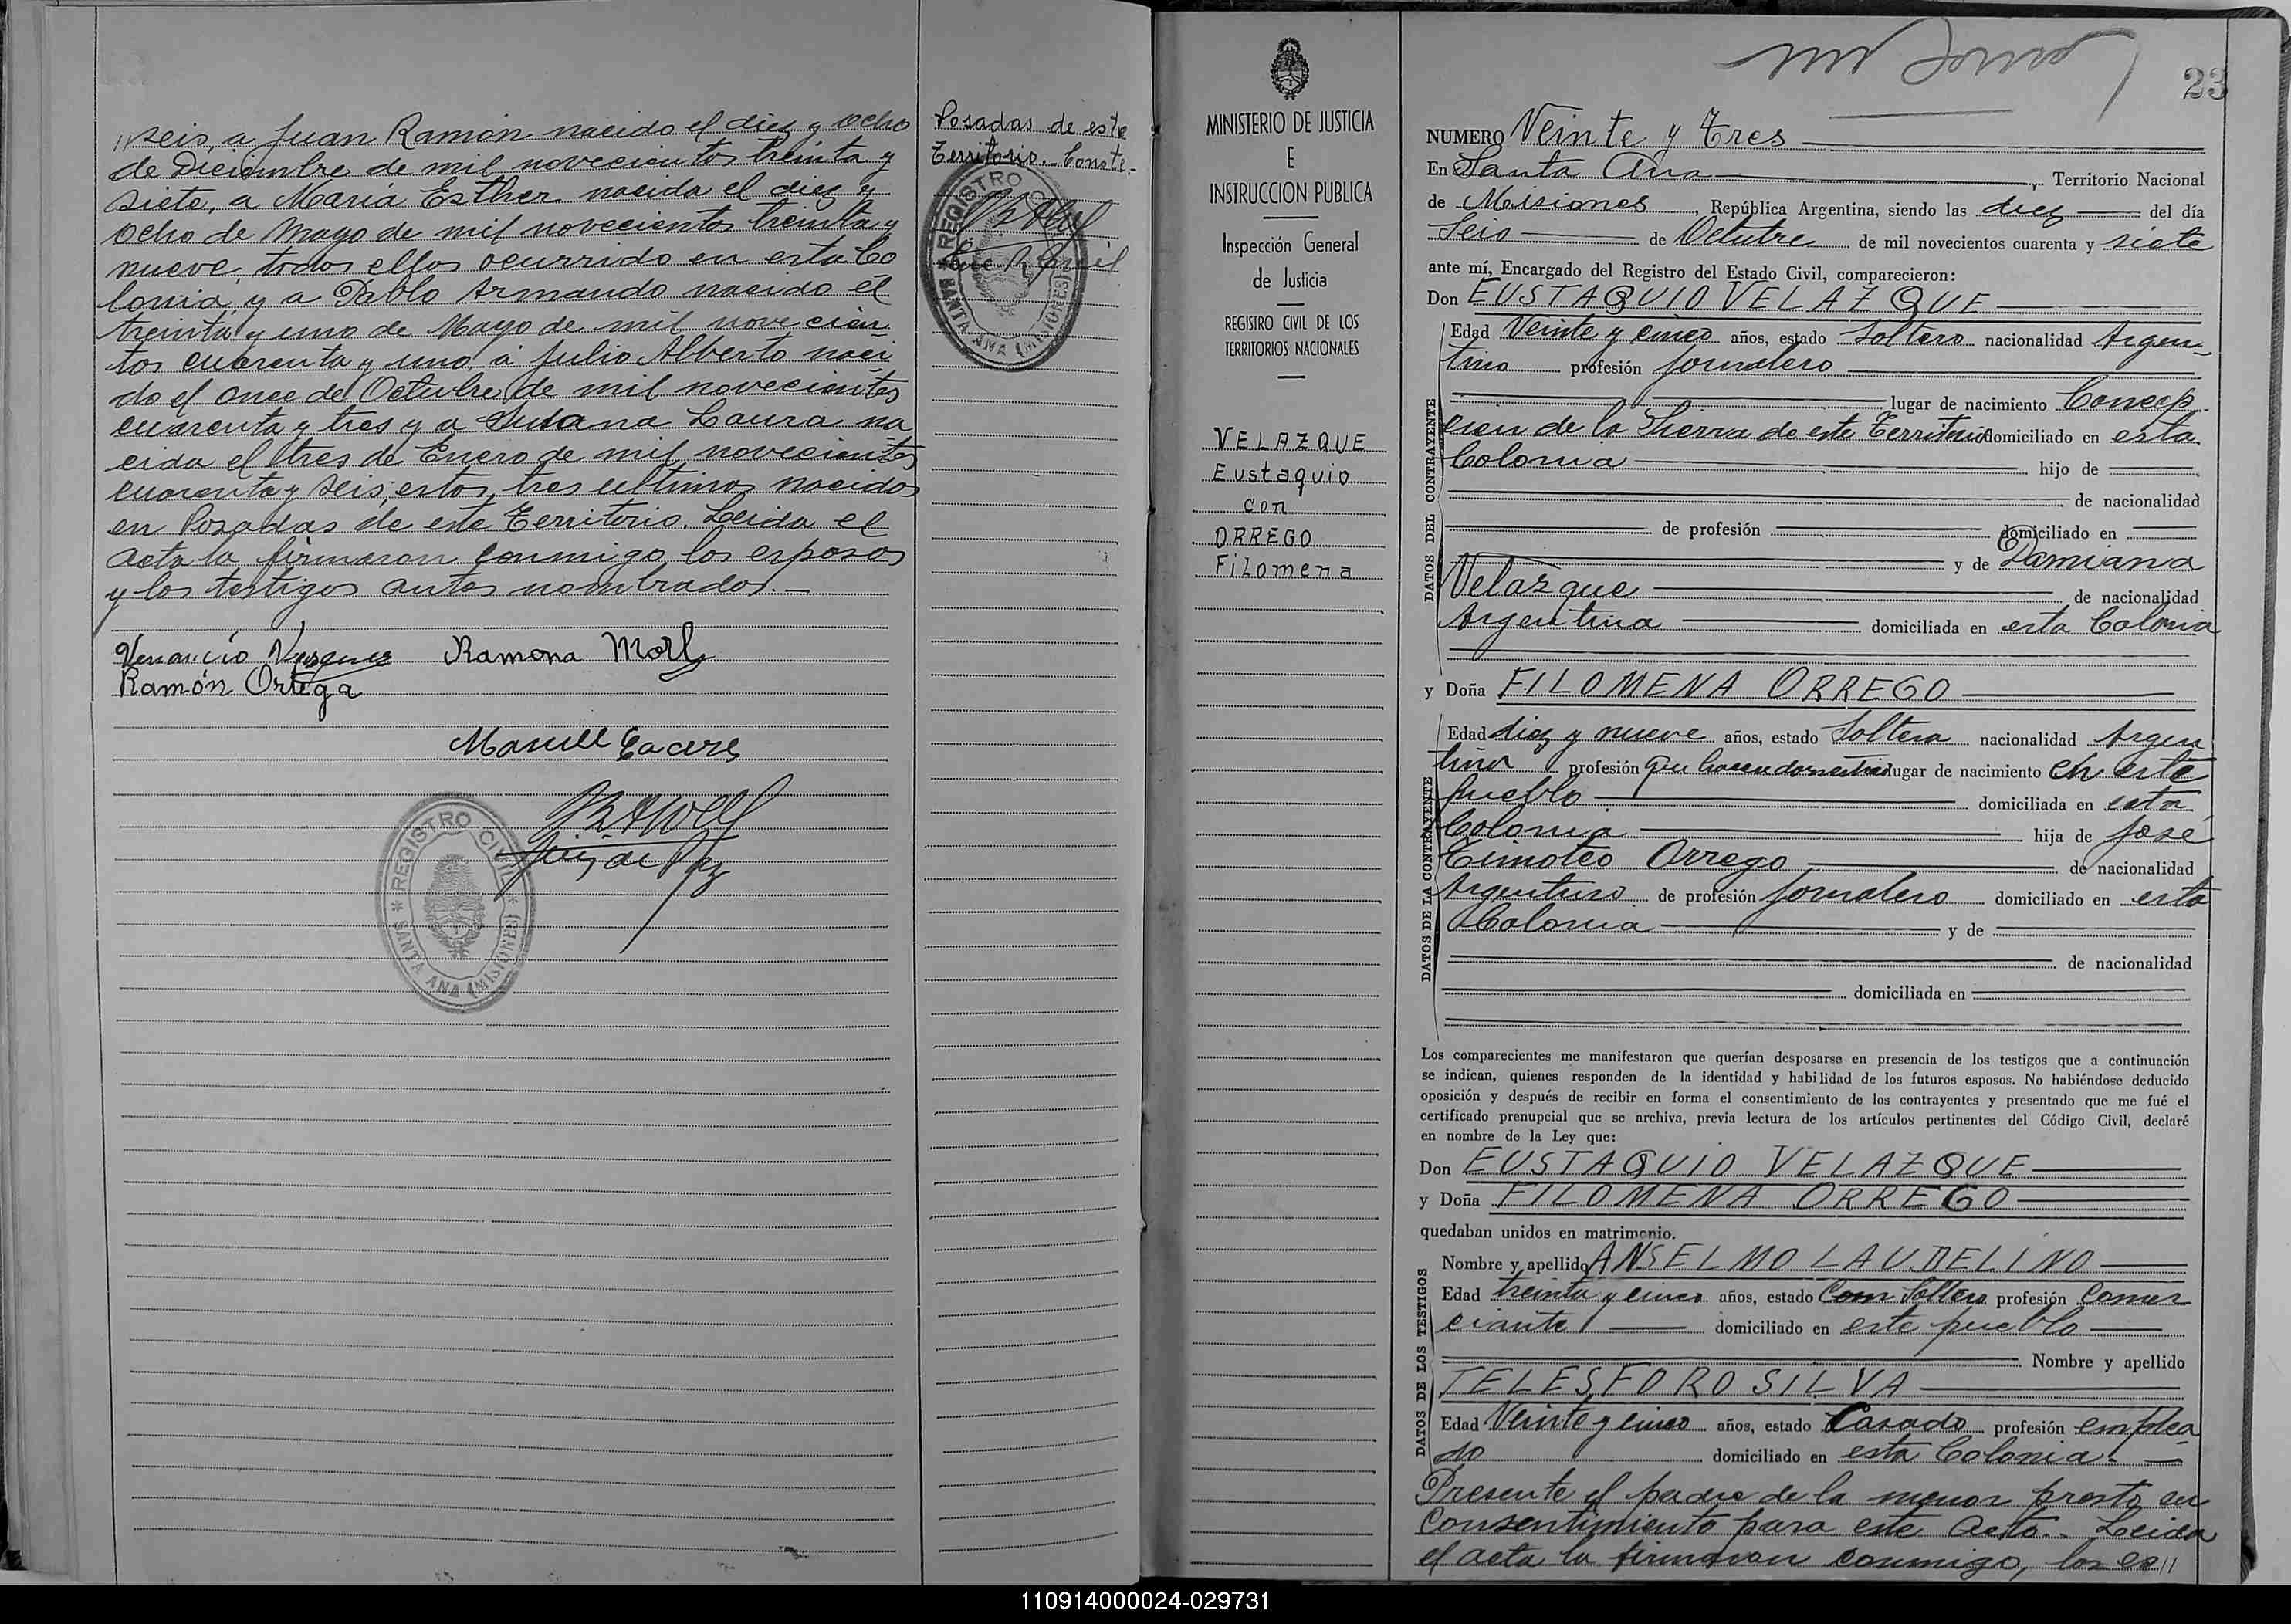 // seis, a Juan Ramón nacido el diez y ocho
de Diciembre de mil novecientos treinta y
siete, a María Esther nacida el diez y
ocho de Mayo de mil novecientos treinta y
nueve, todos ellos ocurrido en esta Co
lonia, y a Pablo Armando nacido el
treinta y uno de Mayo de mil novecien
tos cuarenta y uno, a Julio Alberto naci
do el once de Octubre de mil novecientos
cuarenta y tres y a Susana Laura na
cida el tres de Enero de mil novecientos
cuarenta y seis, estos tres ultimos nacidos
en Posadas de este Territorio. Leida el
acta la firmaron conmigo los esposos
y los testigos antes nombrados.-
Venancio Ramona
Ramón Ortega
Manuel Caceres
Juez de Paz
REGISTRO CIVIL
SANTA ANA (MISIONES)
Posadas de este
Territorio.- Conste.-
REGISTRO CIVIL
SANTA ANA (MISIONES)
MINISTERIO DE JUSTICIA
E
INSTRUCCION PUBLICA
Inspección General
de Justicia
REGISTRO CIVIL DE LOS
TERRITORIOS NACIONALES
VELAZQUE
Eustaquio
con
ORREGO
Filomena
23
NUMERO Veinte y Tres
En Santa Ana, Territorio Nacional
de Misiones, República Argentina, siendo las diez del día
Seis de Octubre de mil novecientos cuarenta y siete
ante mí, Encargado del Registro del Estado Civil, comparecieron:
Don EUSTAQUIO VELAZQUE
DATOS DEL CONTRAYENTE
Edad Veinte y cinco años, estado Soltero nacionalidad Argen-
tino profesión jornalero
lugar de nacimiento Concep-
cion de la Sierra de este Territorio domiciliado en esta
Colonia hijo de
de nacionalidad
de profesión domiciliado en
y de Damiana
Velazque de nacionalidad
Argentina domiciliada en esta Colonia
y Doña FILOMENA ORREGO
DATOS DE LA CONTRAYENTE
Edad diez y nueve años, estado Soltera nacionalidad Argen
tina profesión lugar de nacimiento en este
pueblo domiciliada en esta
Colonia hija de José
Timoteo Orrego de nacionalidad
Argentino de profesión jornalero domiciliado en esta
Colonia y de
de nacionalidad
domiciliada en
Los comparecientes me manifestaron que querían desposarse en presencia de los testigos que a continuación
se indican, quienes responden de la identidad y habilidad de los futuros esposos. No habiéndose deducido
oposición y después de recibir en forma el consentimiento de los contrayentes y presentado que me fué el
certificado prenupcial que se archiva, previa lectura de los artículos pertinentes del Código Civil, declaré
en nombre de la Ley que:
Don EUSTAQUIO VELAZQUE
y Doña FILOMENA ORREGO
quedaban unidos en matrimonio.
DATOS DE LOS TESTIGOS
Nombre y apellido ANSELMO LAUDELINO
Edad treinta y cinco años, estado Soltero profesión Comer
ciante domiciliado en este pueblo
Nombre y apellido
TELESFORO SILVA
Edad Veinte y cinco años, estado Casado profesión emplea
do domiciliado en esta Colonia.-
Presente el padre de la menor presto su
consentimiento para este acto.- Leida
el acta la firmaron conmigo, los es //
110914000024-029731